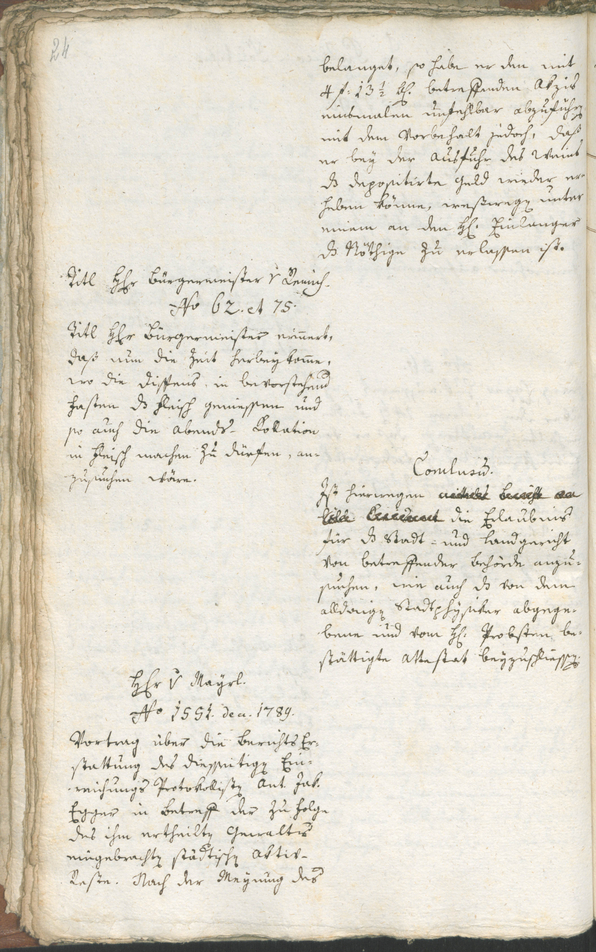 24
belanget, so habe er den mit
4 f: 13½ xr. betreffenden Akzis
einsmalen unfehlbar abzuführen
mit dem Vorbehalt jedoch, daß
er bey der Ausfuhr des Weins
ds depositirte Geld wieder er-
heben könne, wesswegen unter
einem an den H: Einlanger
ds Nöthige zu erlassen ist.
Titl Hhr Bürgermeister v
No 62. et 75.
Titl Hhr Bürgermeister erinnert,
daß nun die Zeit herbeykomme,
wo die Dispens. in bevorstehend
Fasten ds Fleisch geniessen und
so auch die Abends-Collation
in Fleisch machen zu dürfen, an-
zusuchen wäre.
Conclusum.
Ist hierwegen die Erlaubnis
für ds Stadt- und Landgericht
von betreffender Behörde anzu-
suchen, wie auch ds von dem
alldasigen Stadtphysiker abgege-
bene und vom H: Probsten be-
stättigte Attestat beyzuschliessen.
Hhr v Mayrl.
No 1551. de a. 1789.
Vortrag über die Berichts Er-
stattung des diesseitigen Ein-
reichungs Protokollisten Ant. Jak.
Egger in Betreff der zu Folge
des ihm ertheilten Gewaltes
eingebrachten städtischen Aktiv-
Reste. Nach der Meynung des